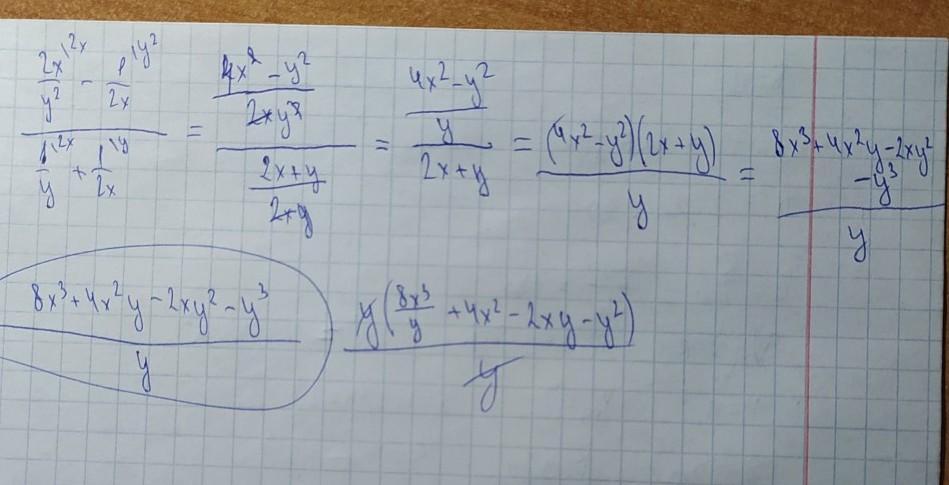 (2x/y² \2x − 1/2x \y²)/(1/y \2x + 1/2x \y) = ((4x² − y²)/(2xy²))/((2x + y)/(2xy)) = ((4x² − y²)/y)/(2x + y) = ((4x² − y²)(2x + y))/y = (8x³ + 4x²y − 2xy² − y³)/y
(8x³ + 4x²y − 2xy² − y³)/y   y(8x³/y + 4x² − 2xy − y²)/y